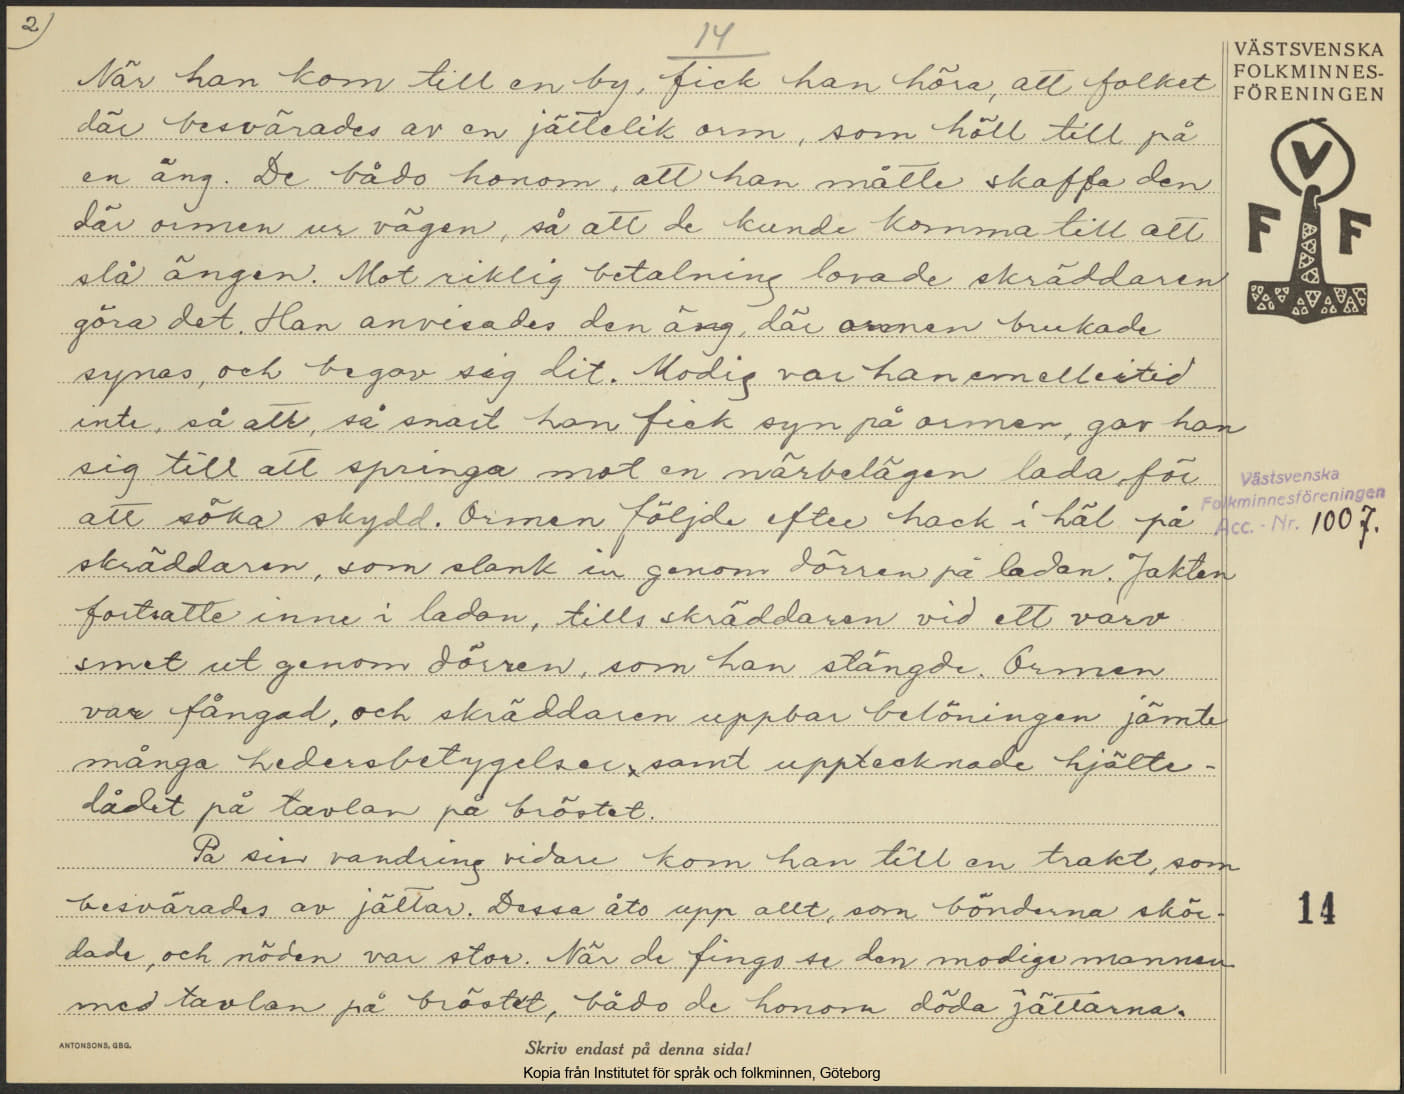 2)
14
När han kom till en by, fick han höra, att folket
där besvärades av en jättelik orm, som höll till på
en äng. De bådo honom, att han måtte skaffa den
där ormen ur vägen, så att de kunde komma till att
slå ängen. Mot riklig betalning lovade skräddaren
göra det. Han anvisades den äng, där ormen brukade
synas, och begav sig dit. Modig var han emellertid
inte, så att, så snart han fick syn på ormen, gav han
sig till att springa mot en närbelägen lada för
att söka skydd. Ormen följde efter hack i häl på
skräddaren, som slank in genom dörren på ladan. Jakten
fortsatte inne i ladan, tills skräddaren vid ett varv
smet ut genom dörren, som han stängde. Ormen
var fångad, och skräddaren uppbar belöningen jämte
många hedersbetygelser, samt upptecknade hjälte-
dådet på tavlan på bröstet.
På sin vandring vidare kom han till en trakt, som
besvärades av jättar. Dessa åto upp allt, som bönderna skör-
dade, och nöden var stor. När de fingo se den modige mannen
med tavlan på bröstet, bådo de honom döda jättarna.
VÄSTSVENSKA
FOLKMINNES-
FÖRENINGEN
V
F F
Västsvenska
Folkminnesföreningen
Acc. - Nr. 1007.
14
ANTONSONS, GBG.
Skriv endast på denna sida!
Kopia från Institutet för språk och folkminnen, Göteborg